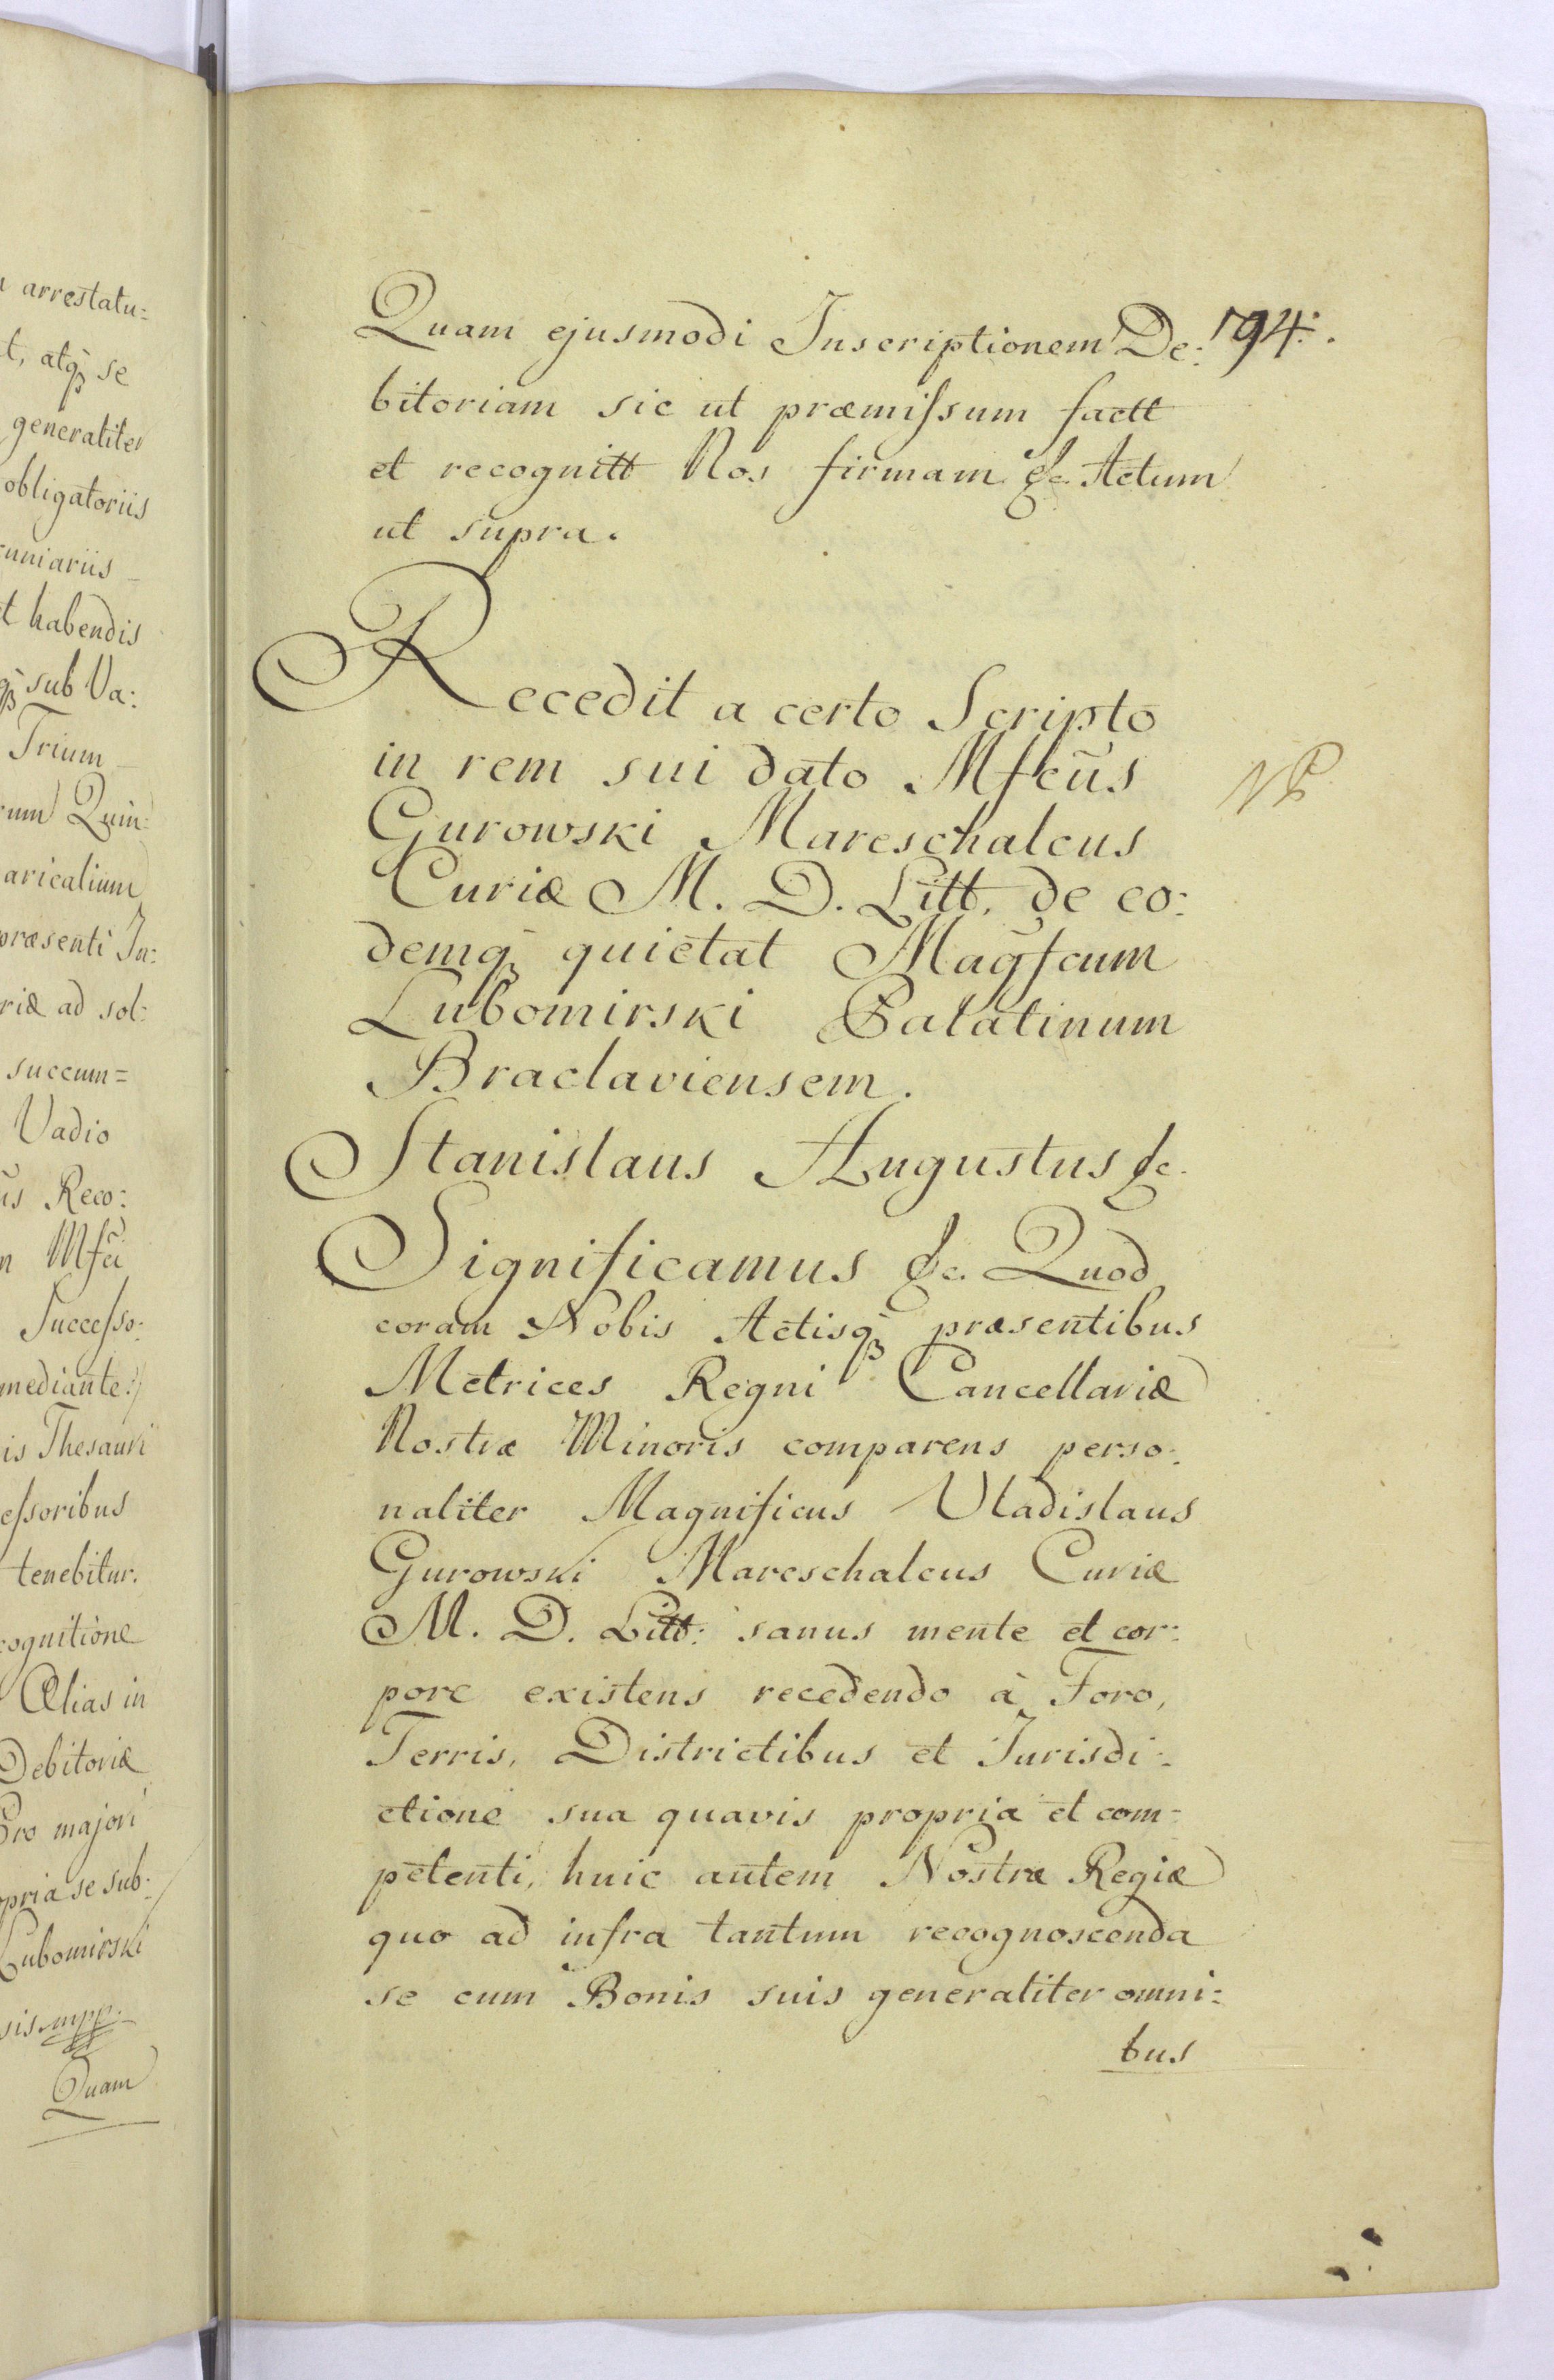 arrestatu:
t, atq̃ se
generaliter
obligatoriis
uniariis
t habendis
q̃ sub Va:
Trium
rum Quin:
aricalium
præsenti In:
riæ ad sol:
succum=
Vadio
us Reco:
n Mfci
Successo:
mediante:/
is Thesauri
essoribus
tenebitur.
cognitione
Alias in
Debitoriæ
Pro majori
opria se sub:
Lubomirski
sis mpp.
Quam
794.
Quam ejusmodi Inscriptionem De:
bitoriam sic ut præmissum factt
et recognitt Nos firmam &c. Actum
ut supra.
Recedit a certo Scripto
in rem sui dato Mfcus
Gurowski Mareschalcus
Curiæ M. D. Litt. de eo:
demq̃ quietat Magfcum
Lubomirski Palatinum
Braclaviensem.
Stanislaus Augustus &c.
Significamus &c. Quod
coram Nobis Actisq̃ præsentibus
Metrices Regni Cancellariæ
Nostræ Minoris comparens perso:
naliter Magnificus Vladislaus
Gurowski Mareschalcus Curiæ
M. D. Litt: sanus mente et cor:
pore existens recedendo à Foro,
Terris, Districtibus et Jurisdi:
ctione sua quavis propria et com=
petenti, huic autem Nostræ Regiæ
quo ad infra tantum recognoscenda
se cum Bonis suis generaliter omni:
bus